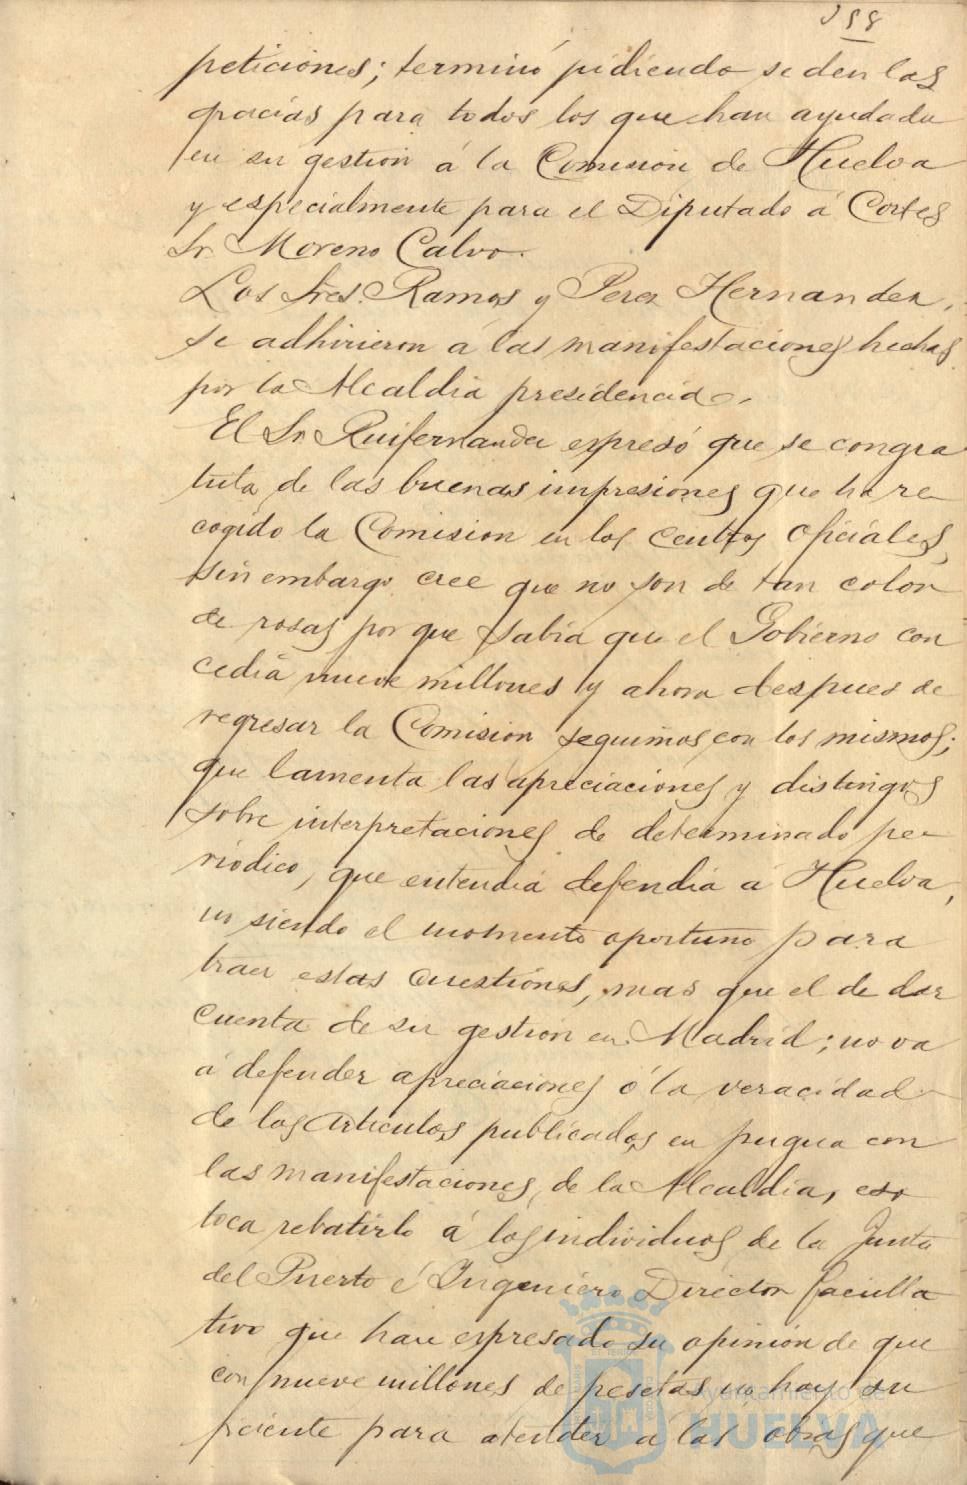 peticiones; terminó pidiendo se den las
gracias para todos los que han ayudado
en su gestión á la Comisión de Huelva
y especialmente para el Diputado á Cortes
Sr. Moreno Calvo.
Los Sres. Ramos y Perez Hernandez,
se adhirieron á las manifestaciones hechas
por la Alcaldia presidencia.
El Sr. Ruifernandez expresó que se congra
tula de las buenas impresiones que ha re-
cogido la Comision en los centros oficiales,
sin embargo cree que no son de tan color
de rosas porque sabia que el Gobierno con
cedia nueve millones y ahora despues de
regresar la Comisión seguimos con los mismos;
que lamenta las apreciaciones y distingos
sobre interpretaciones de determinado pe-
riódico, que entendia defendia á Huelva,
no siendo el momento oportuno para
traer estas cuestiones, mas que el de dar
cuenta de su gestión en Madrid; no va
á defender apreciaciones ó la veracidad
de los articulos publicados en pugna con
las manifestaciones de la Alcaldia, eso
toca rebatirlo á los individuos de la Junta
del Puerto é Ingeniero Director faculta
tivo que han expresado su opinión de que
con nueve millones de pesetas no hay su
ficiente para atender á las obras que
Ayuntamiento de
HUELVA